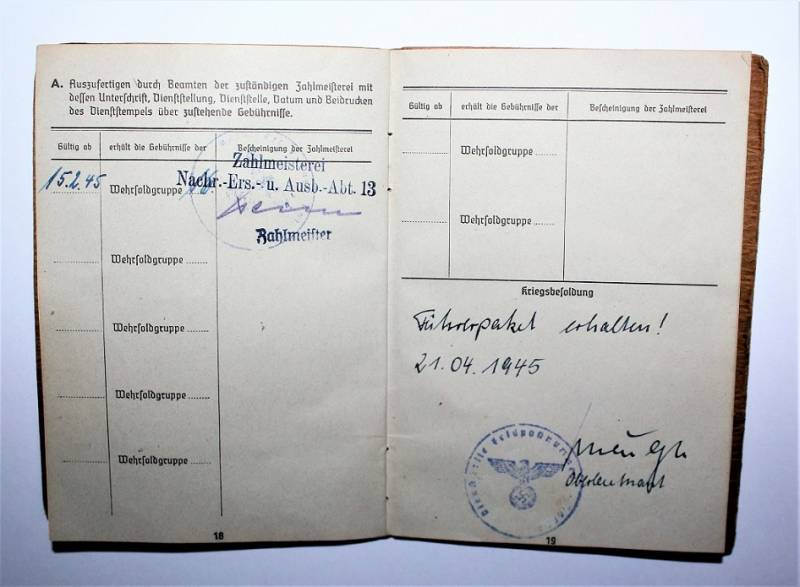 A. Auszufertigen durch Beamten der zuständigen Zahlmeisterei mit
dessen Unterschrift, Dienststellung, Dienststelle, Datum und Beidrucken
des Dienststempels über zustehende Gebührnisse.
Gültig ab erhält die Gebührnisse der Bescheinigung der Zahlmeisterei
Zahlmeisterei
15.2.45 Wehrsoldgruppe Nachr.-Ers.- u. Ausb.-Abt. 13
Zahlmeister
Wehrsoldgruppe ......
Wehrsoldgruppe ......
Wehrsoldgruppe ......
Wehrsoldgruppe ......
18
Gültig ab erhält die Gebührnisse der Bescheinigung der Zahlmeisterei
Wehrsoldgruppe ......
Wehrsoldgruppe ......
Kriegsbesoldung
Führerpaket erhalten!
21.04.1945
Dienststelle Feldpostnummer
Oberleutnant
19